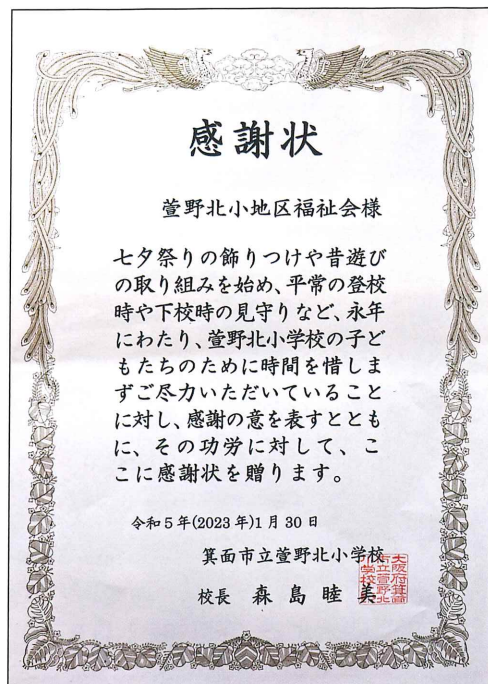 感謝状
萱野北小地区福祉会様
七夕祭りの飾りつけや昔遊び
の取り組みを始め、平常の登校
時や下校時の見守りなど、永年
にわたり、萱野北小学校の子ど
もたちのために時間を惜しま
ずご尽力いただいていること
に対し、感謝の意を表すととも
に、その功労に対して、こ
こに感謝状を贈ります。
令和5年(2023年)1月30日
箕面市立萱野北小学校
校長 森島睦美
大阪府箕面
市立萱野北
小学校